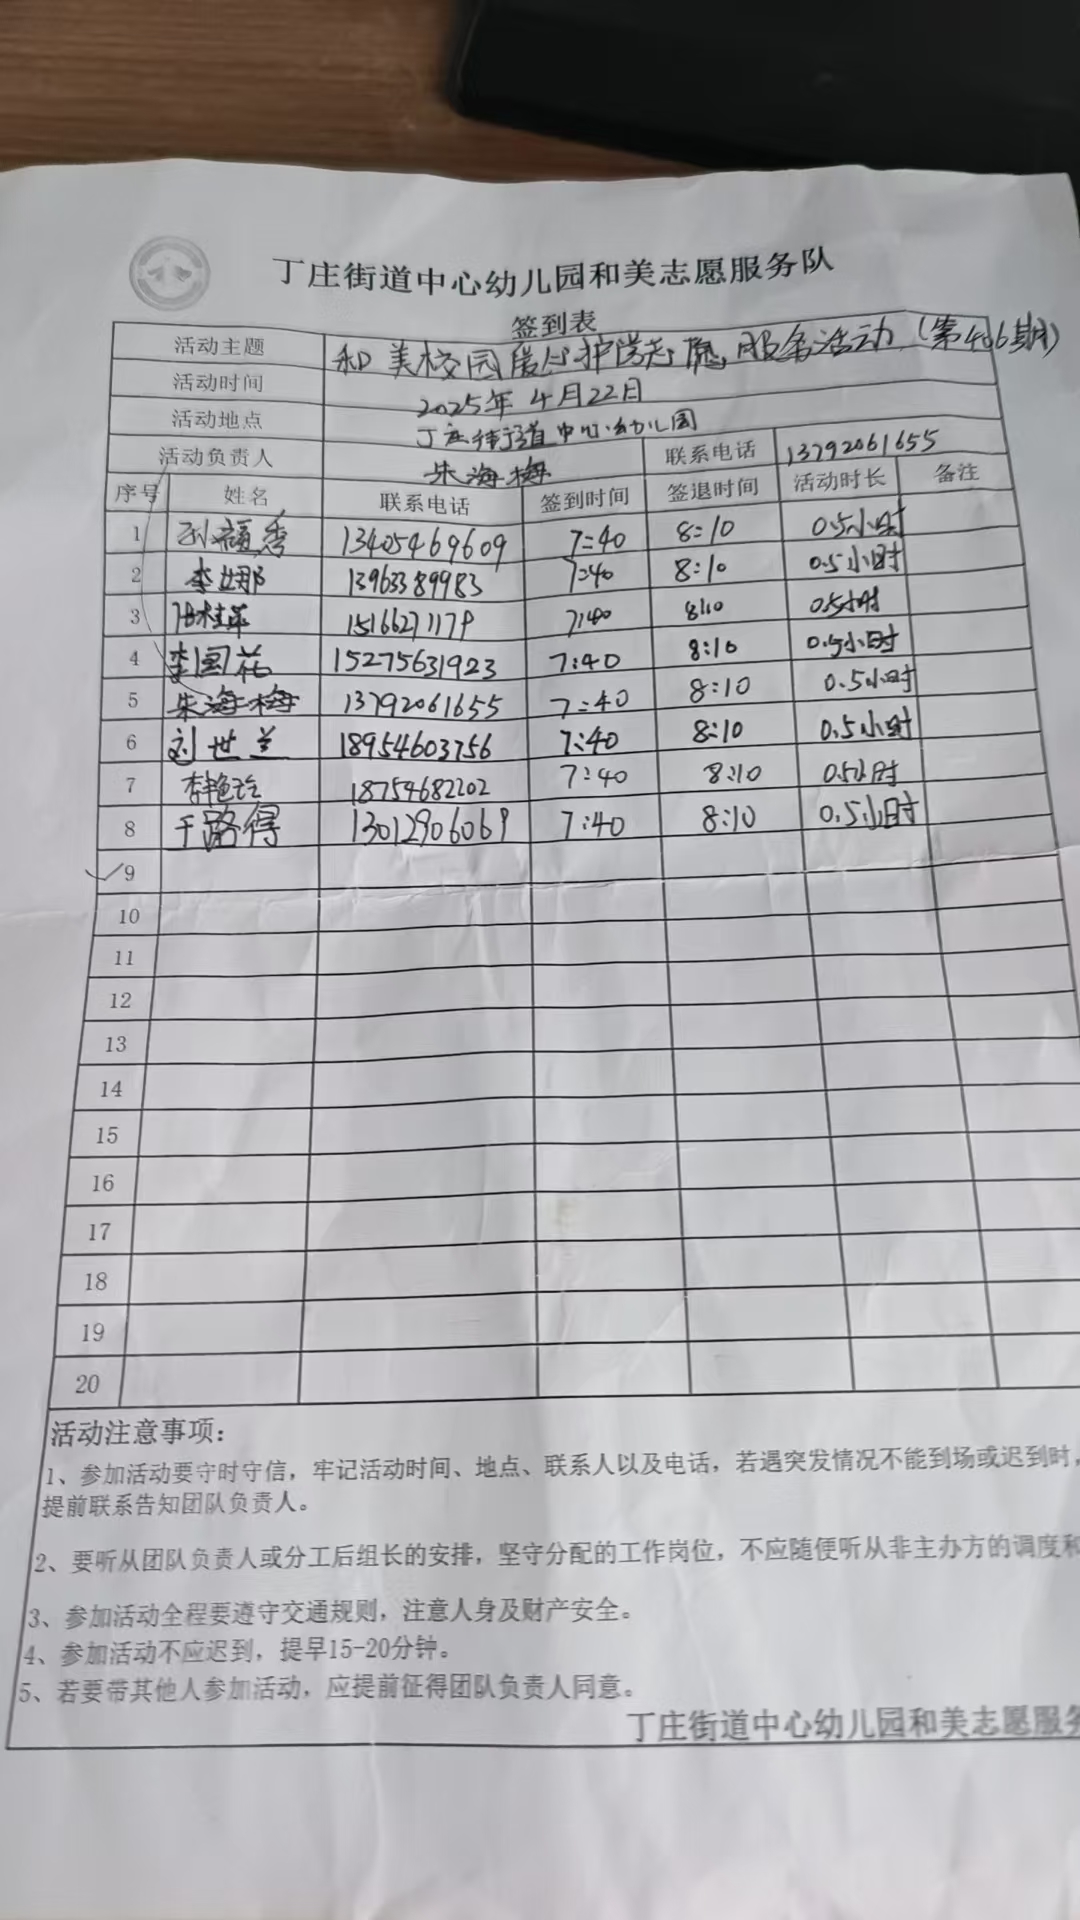 丁庄街道中心幼儿园和美志愿服务队
签到表
活动主题 和美校园爱心护学志愿服务活动(第406期)
活动时间 2025年4月22日
活动地点 丁庄街道中心幼儿园
活动负责人 朱海梅 联系电话 13792061655
序号 姓名 联系电话 签到时间 签退时间 活动时长 备注
1 孙福秀 13405469609 7:40 8:10 0.5小时
2 李娜 13963389983 7:40 8:10 0.5小时
3 15166271179 7:40 8:10 0.5小时
4 李国花 15275631923 7:40 8:10 0.5小时
5 朱海梅 13792061655 7:40 8:10 0.5小时
6 刘世兰 18954603756 7:40 8:10 0.5小时
7 18754682202 7:40 8:10 0.5小时
8 于路得 13012906069 7:40 8:10 0.5小时
9
10
11
12
13
14
15
16
17
18
19
20
活动注意事项:
1、参加活动要守时守信,牢记活动时间、地点、联系人以及电话,若遇突发情况不能到场或迟到时,
提前联系告知团队负责人。
2、要听从团队负责人或分工后组长的安排,坚守分配的工作岗位,不应随便听从非主办方的调度和
3、参加活动全程要遵守交通规则,注意人身及财产安全。
4、参加活动不应迟到,提早15-20分钟。
5、若要带其他人参加活动,应提前征得团队负责人同意。
丁庄街道中心幼儿园和美志愿服务